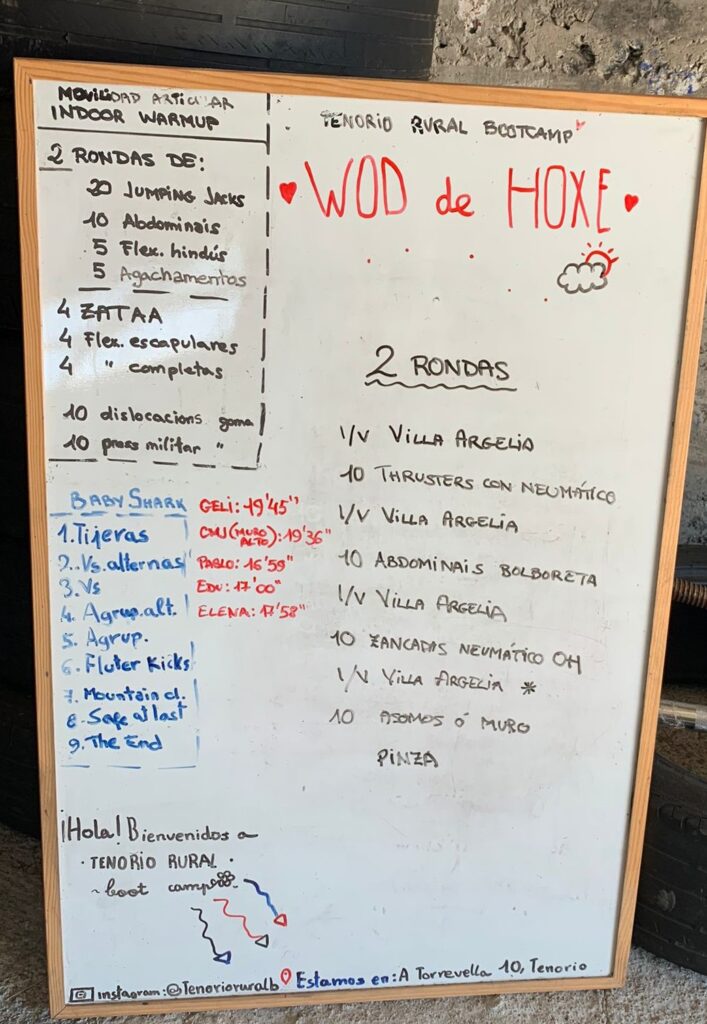 MOVILIDAD ARTICULAR
INDOOR WARMUP
2 RONDAS DE:
20 JUMPING JACKS
10 Abdominais
5 Flex. hindús
5 Agachamentos
4 ZATAA
4 Flex. escapulares
4 " completas
10 dislocacions goma
10 press militar "
BABY SHARK
1. Tijeras
2. Vs. alternas
3. Vs
4. Agrup. alt.
5. Agrup.
6. Fluter Kicks
7. Mountain cl.
8. Safe at last
9. The End
GELI: 19'45''
CMJ (MURO ALTO): 19'36"
PABLO: 16'59"
EDU: 17'00"
ELENA: 17'58"
TENORIO RURAL BOOTCAMP
WOD de HOXE
2 RONDAS
1/V VILLA ARGELIA
10 THRUSTERS CON NEUMÁTICO
1/V VILLA ARGELIA
10 ABDOMINAIS BOLBORETA
1/V VILLA ARGELIA
10 ZANCADAS NEUMÁTICO OH
1/V VILLA ARGELIA *
10 ASOMOS Ó MURO
PINZA
¡Hola! Bienvenidos a
· TENORIO RURAL ·
~ boot camp
instagram: @Tenorioruralb Estamos en: A Torrevella 10, Tenorio